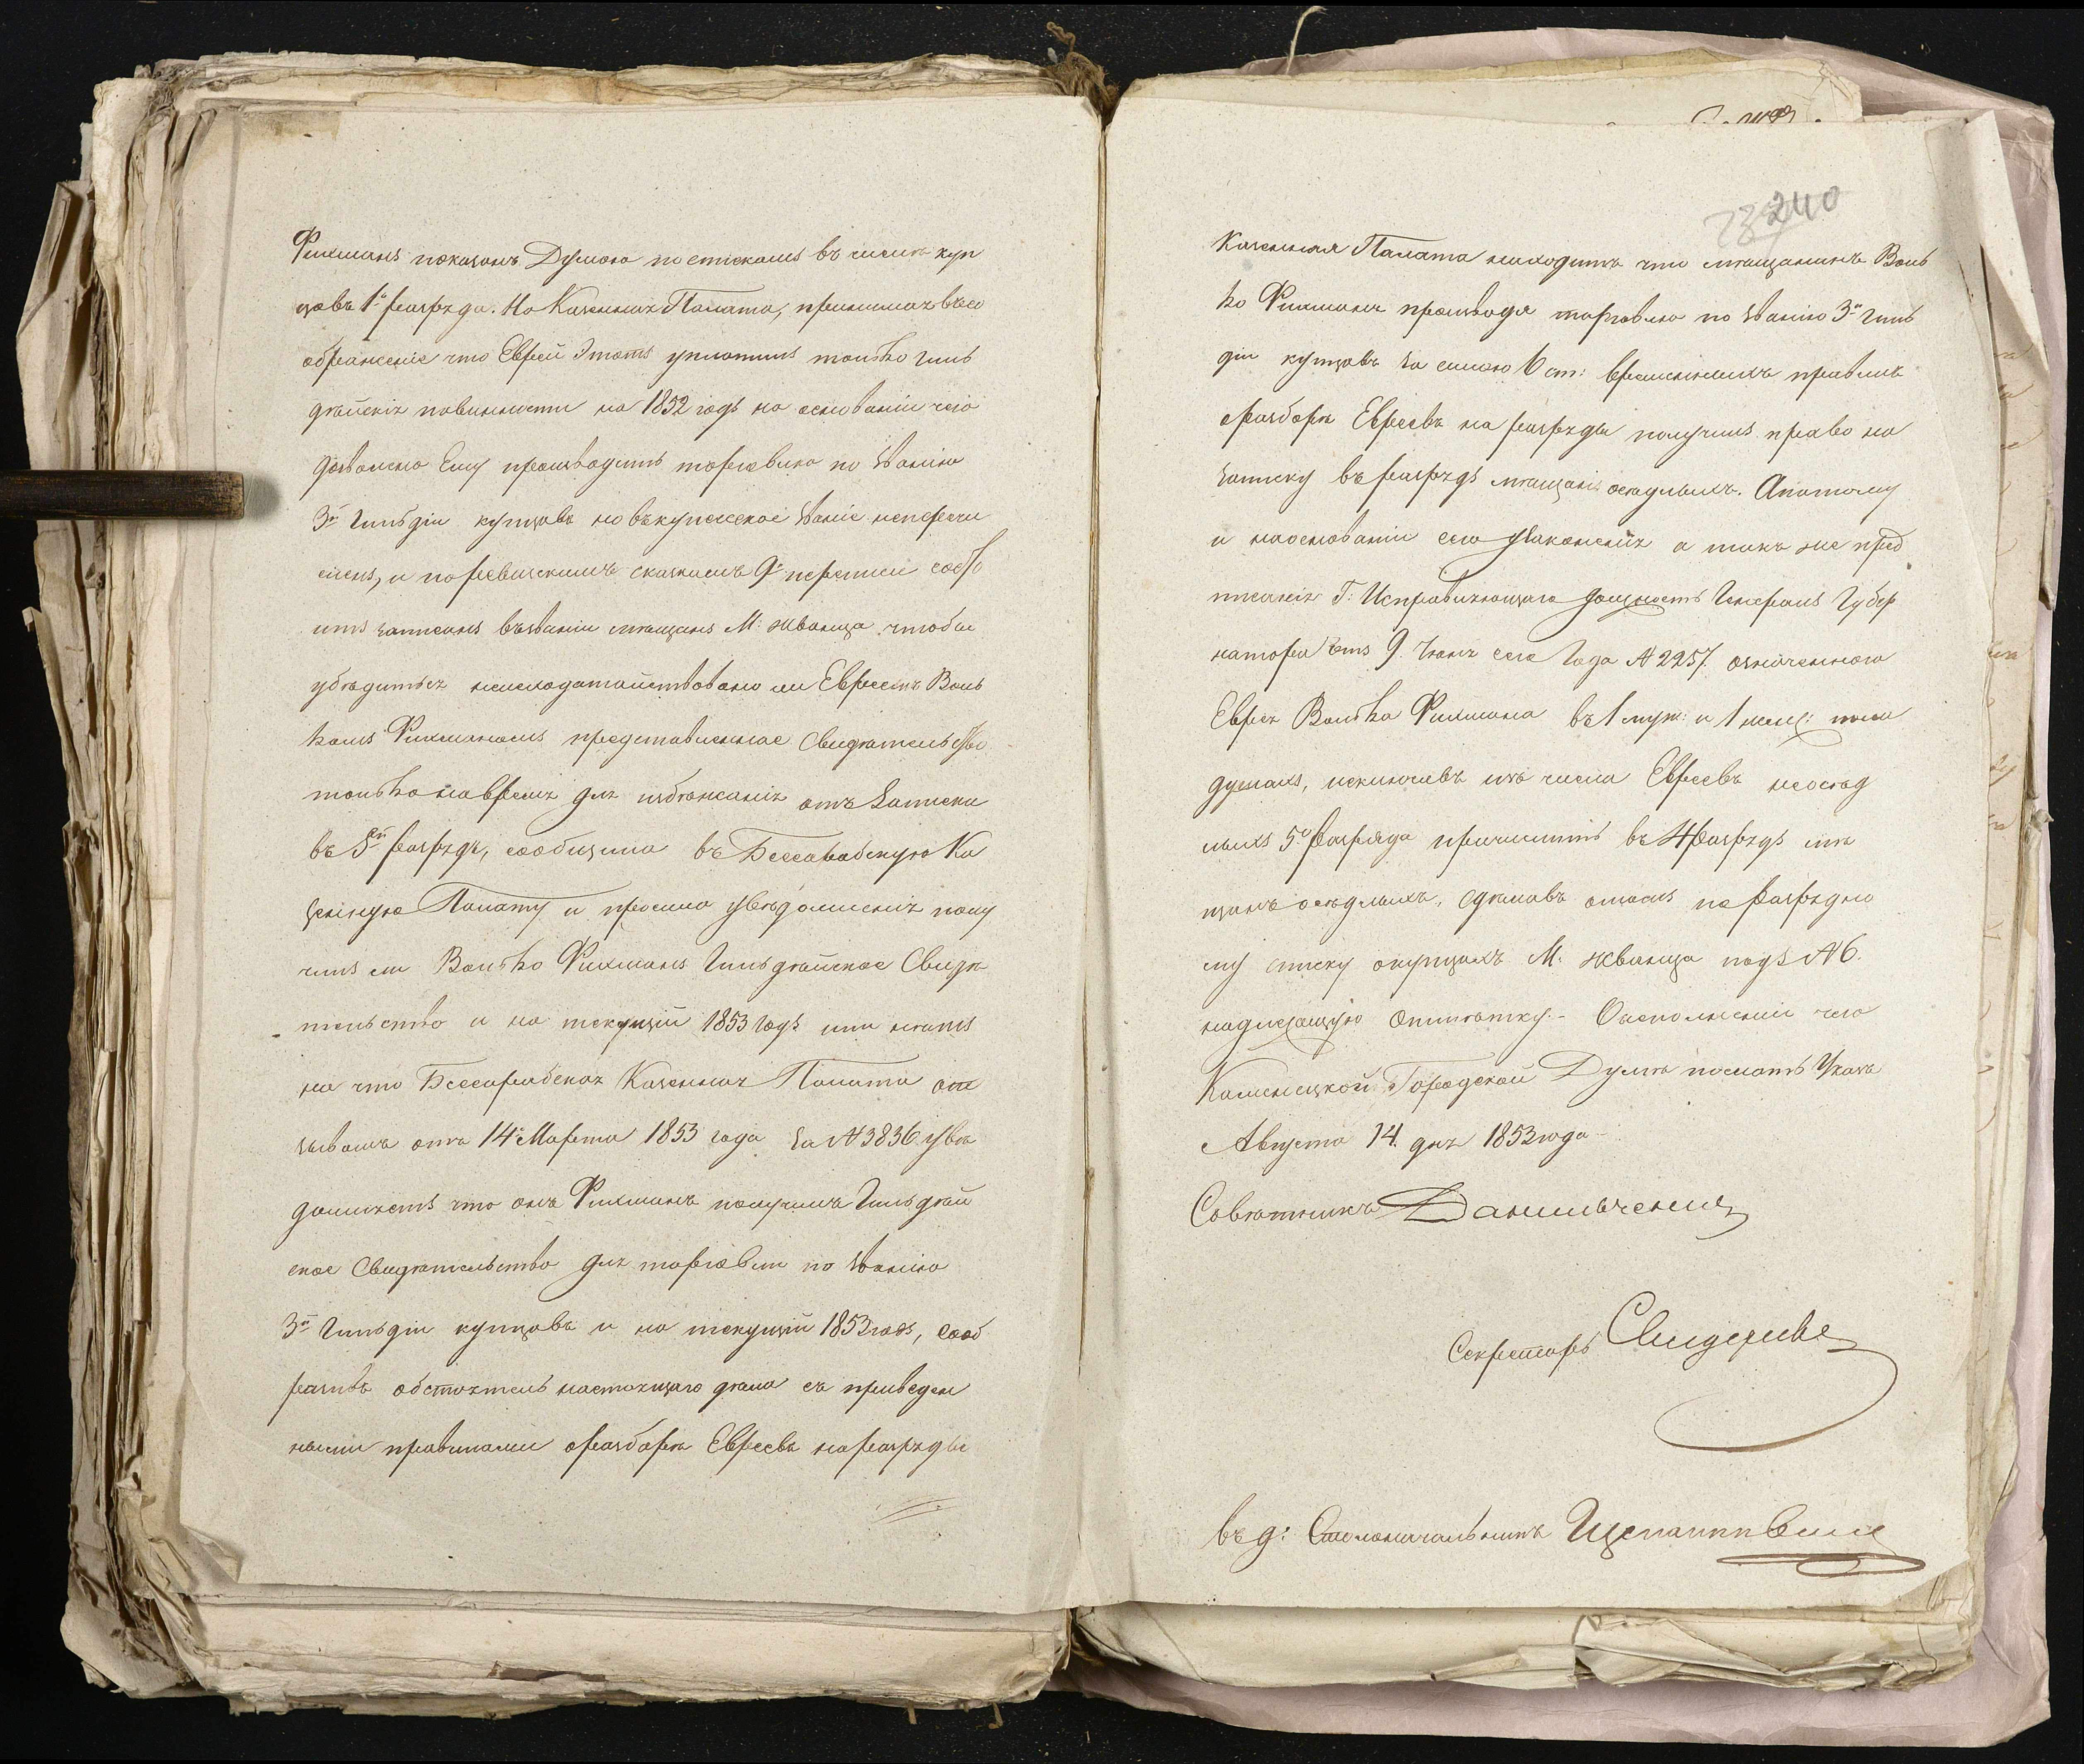 Фихманъ показанъ Думою по спискамъ въ числѣ куп
цовъ 1го разряда. Но Казенная Палата, принимая въ со
ображеніе что Еврей Этотъ уплотилъ только гиль
дѣйскія повинности на 1852 годъ на основаніи чего
дозволено Ему производить торговлю по званію
3й Гильдіи купцовъ но въ купеческое званіе неперечи
сленъ, и по ревизскимъ сказкамъ 9й переписи состо
итъ записанъ въ званіи мѣщанъ М: Жванца чтобы
убѣдиться неисходатайствовано ли Евреемъ Воль
комъ Фихманомъ представленное Свидѣтельство
только на время для избѣжанія отъ Записки
въ 5й разрядъ, сообщила въ Бессарабскую Ка
зенную Палату и просила увѣдомленія полу
чилъ ли Волько Фихманъ Гильдѣйское Свидѣ
тельство и на текущій 1853 годъ или нѣтъ
на что Бессарабская Казенная Палата от
зывомъ отъ 14 Марта 1853 года за № 3836 увѣ
домляетъ что онъ Фихманъ получилъ Гильдѣй
ское Свидѣтельство для торговли по Званію
3й Гильдіи купцовъ и на текущій 1853 годъ, сооб
разивъ обстоятель настоящаго дѣла съ приведен
ными правилами о разборѣ Евреевъ на разряды
240
Казенная Палата находитъ что мѣщанинъ Воль
ко Фихманъ производя торговлю по Званію 3й Гиль
діи купцовъ за силою 6 ст: временныхъ правилъ
о разборѣ Евреевъ на разряды получилъ право на
записку въ разрядъ мѣщанъ осѣдлыхъ. А потому
и на основаніи сего узаконенія а такъ же пред
писанія Г: Исправляющаго должность Генералъ Губер
натора отъ 9 Іюня сего Года № 2257. означеннаго
Еврея Волька Фихмана въ 1 муж: и 1 женс: пола
душахъ, исключивъ изъ числа Евреевъ неосѣд
лыхъ 5го Разряда причислить въ 4 Разрядъ мѣ
щанъ осѣдлыхъ, сдѣлавъ о томъ по Разрядно
му списку о купцахъ М: Жванца подъ № 6.
надлежащую Отмѣтку. - О исполненіи чего
Каменецкой Городской Думѣ послать Указъ
Августа 14 дня 1853 года
Совѣтникъ Данильченко
Секретарь
въ д: Столоначальника